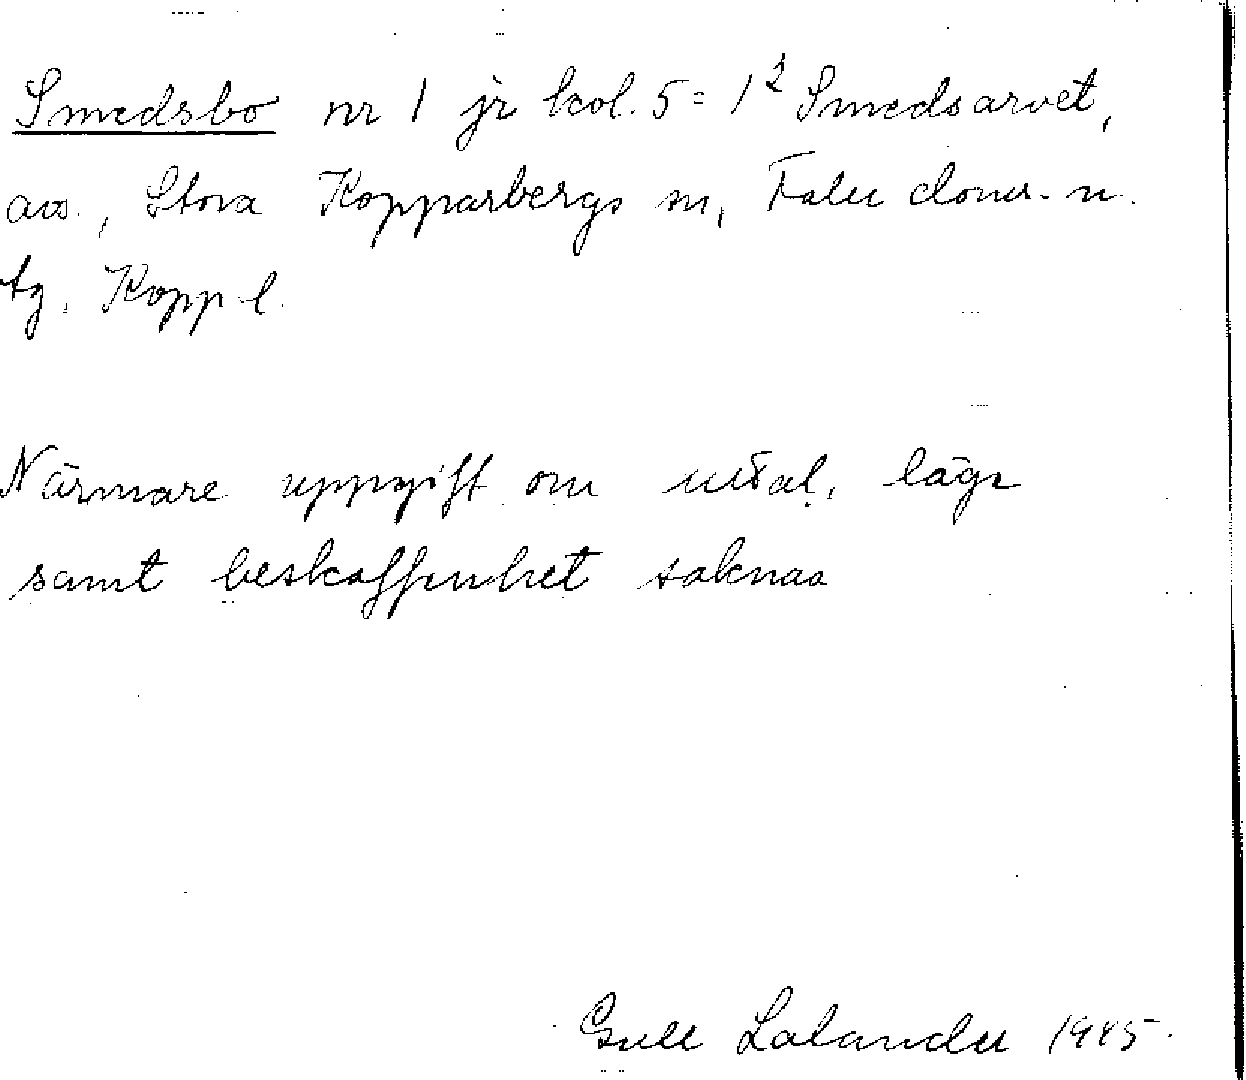 Smedsbo nr 1 jr kol. 5 = 1² Smedsarvet,
avs., Stora Kopparbergs sn, Falu doms. o.
tg, Kopp. l.
Närmare uppgift om uttal, läge
samt beskaffenhet saknas
Gull Lalander 1945.